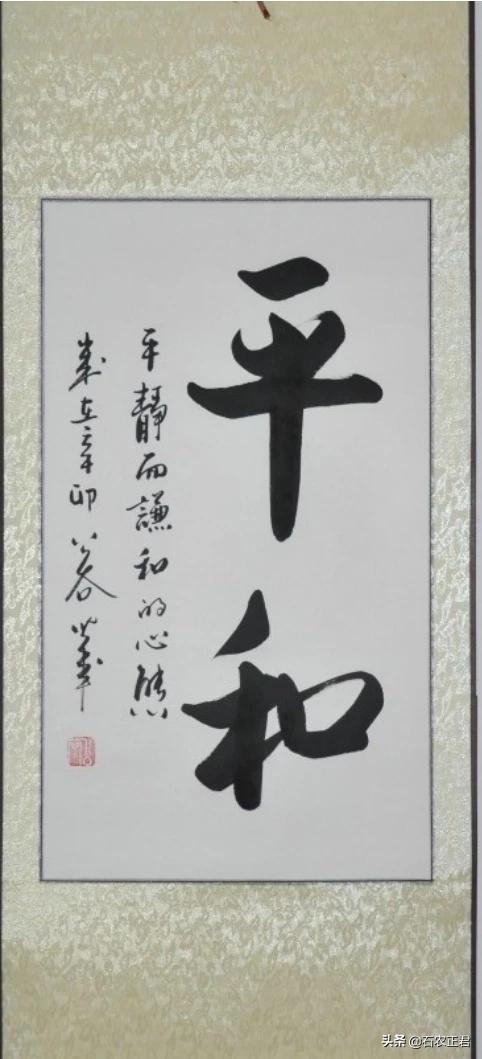 平和
平靜而謙和的心態
歲在辛卯
头条 @石农正君